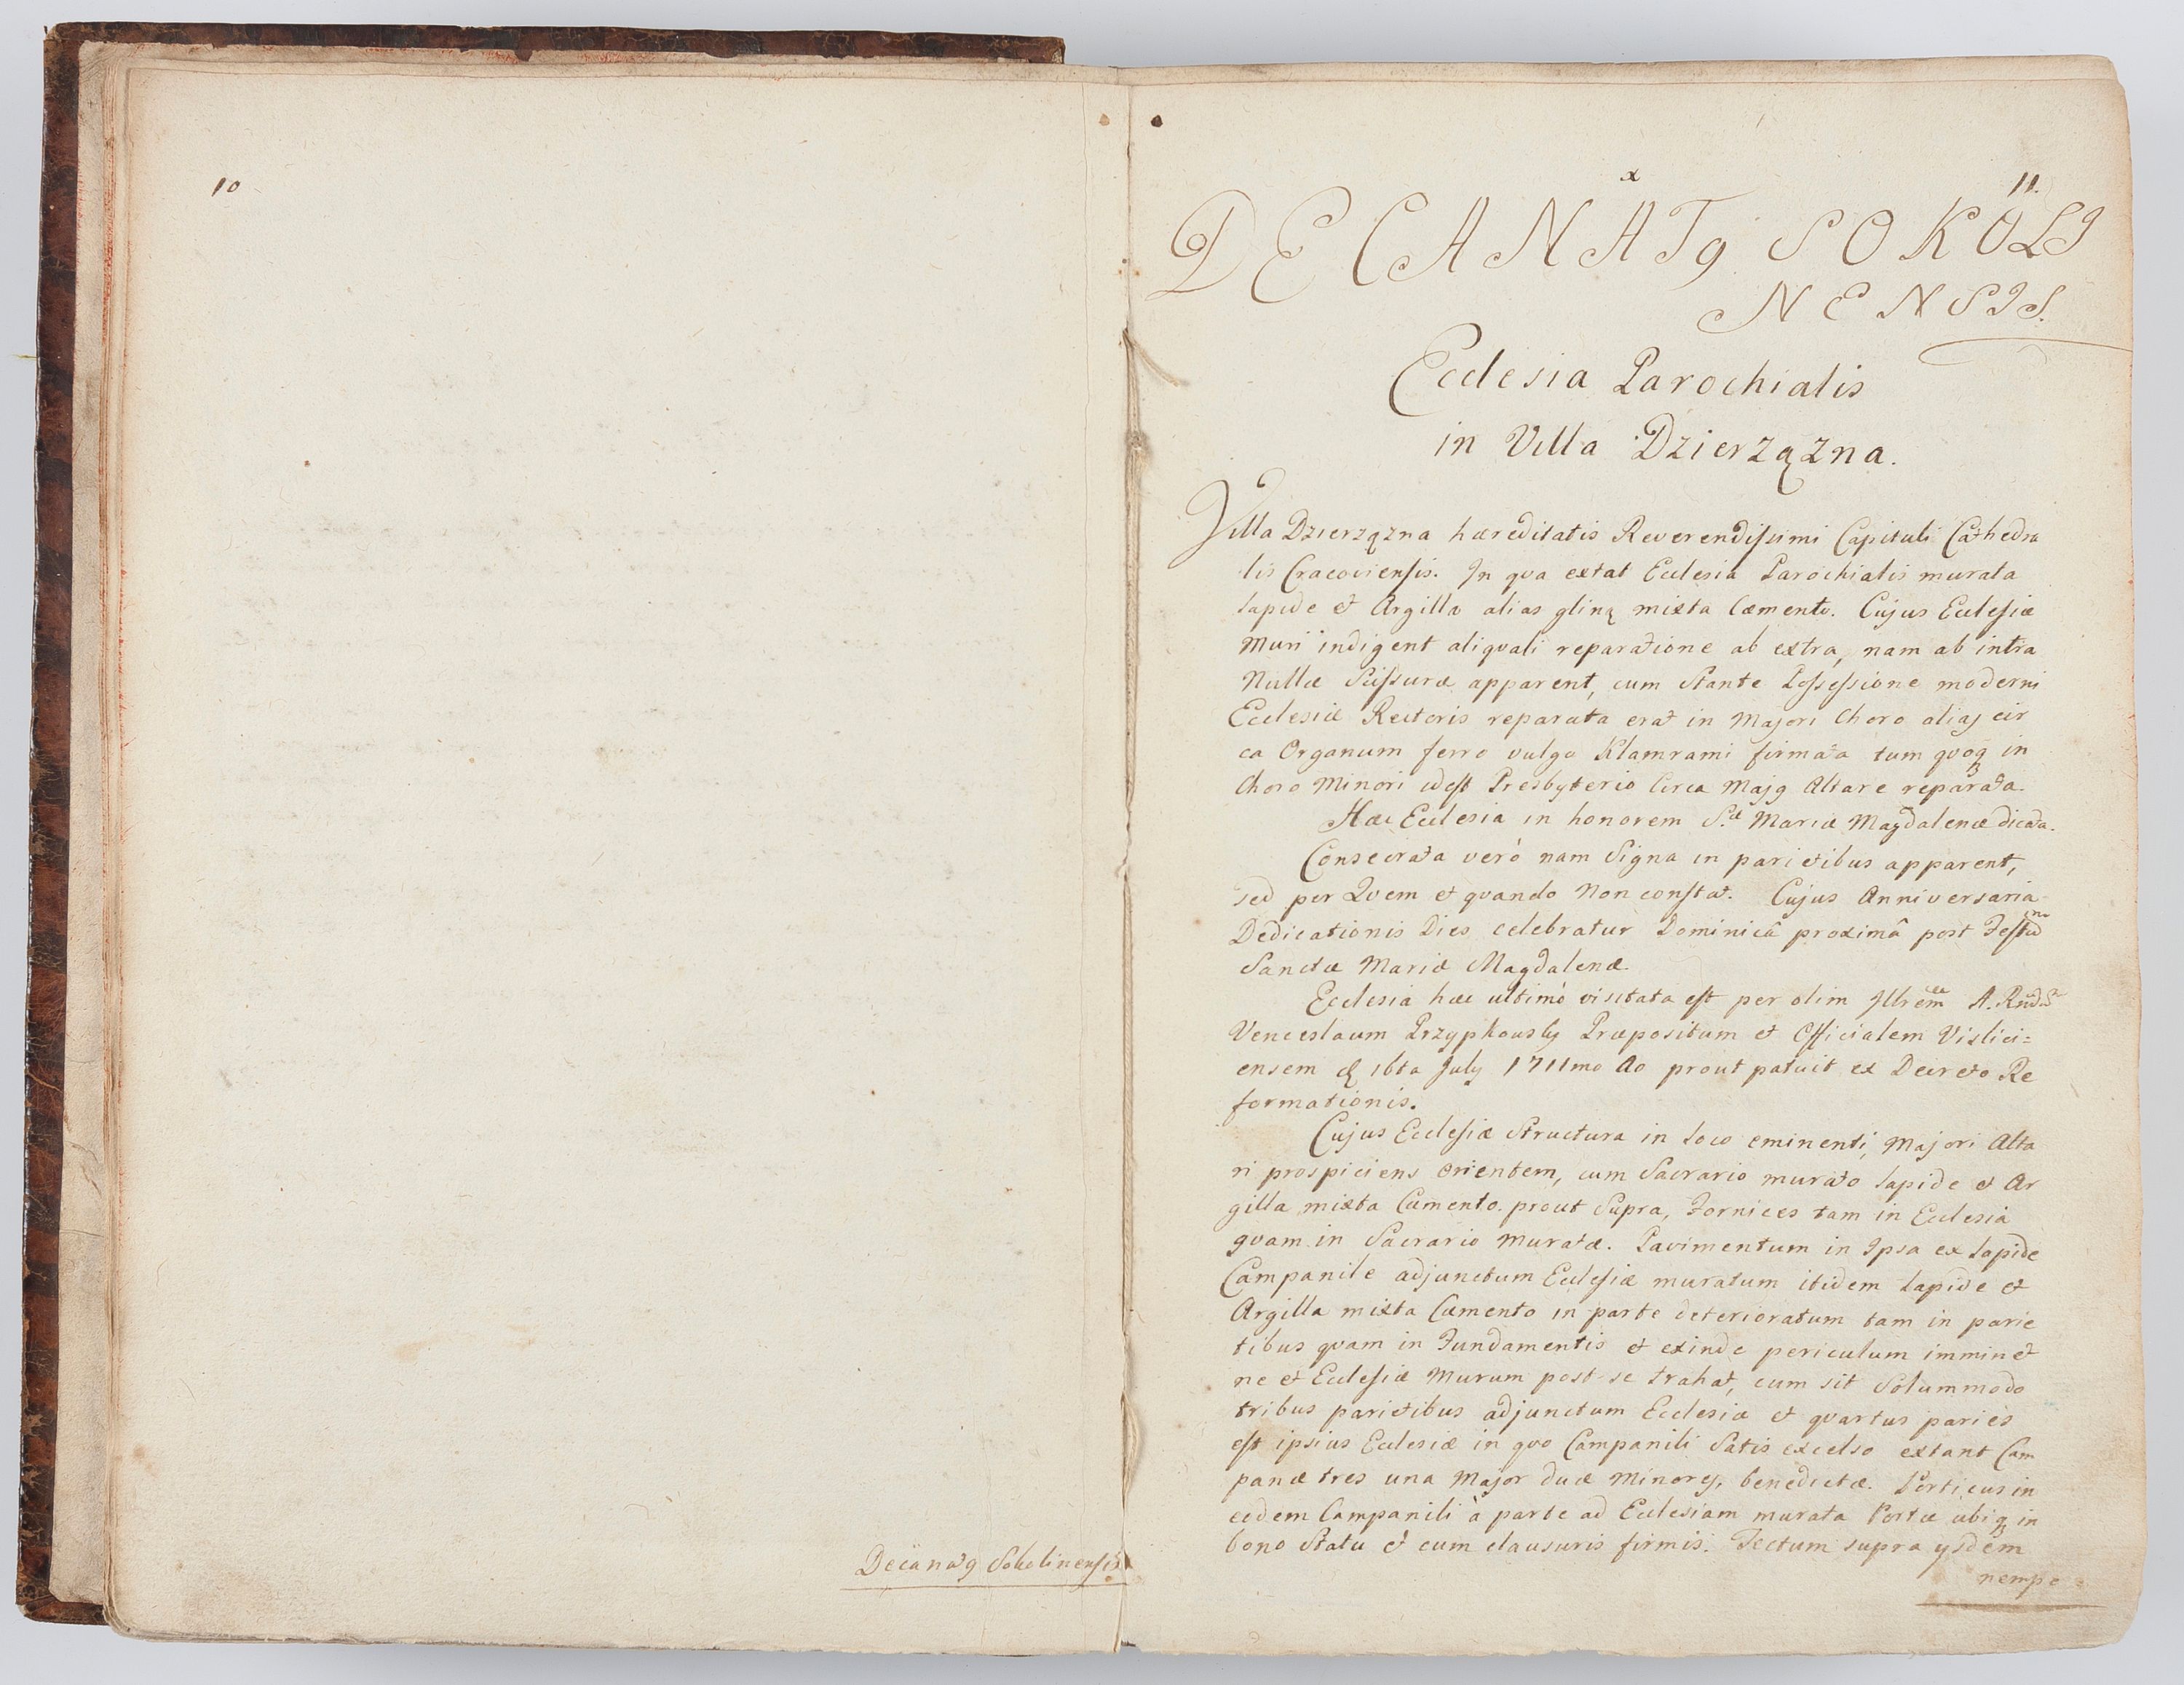 10
Decanatꝯ Sokolinensis
x
11.
DECANATꝯ SOKOLI
NENSIS.
Ecclesia Parochialis
in Villa Dzierzązna.
Villa Dzierzązna hæreditatis Reverendissimi Capituli Cathedra
lis Cracoviensis. In qva extat Ecclesia Parochialis murata
lapide et Argilla alias gliną mixta Cæmento. Cujus Ecclesiæ
Muri indigent aliqvali reparatione ab extra, nam ab intra
Nullæ Scissuræ apparent, cum Stante Possessione moderni
Ecclesiæ Rectoris reparata erat in Majori Choro alias cir
ca Organum ferro vulgo Klamrami firmata tum qvoqꝫ in
Choro Minori idest Presbyterio Circa Majꝯ Altare reparata.
Hæc Ecclesia in honorem S.æ Mariæ Magdalenæ dicata.
Consecrata verò nam Signa in parietibus apparent,
sed per Qvem et qvando Non constat. Cujus Anniversaria
Dedicationis Dies celebratur Dominicâ proximâ post Festum
Sanctæ Mariæ Magdalenæ.
Ecclesia hæc ultimò visitata est per olim Illrem A. Rndū
Venceslaum Przypkowsky Præpositum et Officialem Vislici=
ensem 16ta July 1711mo Ao prout patuit ex Decreto Re
formationis.
Cujus Ecclesiæ Structura in loco eminenti, Majori Alta
ri prospiciens orientem, cum Sacrario murato lapide et Ar
gilla mixta Cæmento prout Supra, Fornices tam in Ecclesia
qvam in Sacrario muratæ. Pavimentum in Ipsa ex lapide
Campanile adjunctum Ecclesiæ muratum itidem lapide et
Argilla mixta Cæmento in parte deterioratum tam in parie
tibus qvam in Fundamentis et exinde periculum imminet
ne et Ecclesiæ Murum post se trahat, cum sit Solummodo
tribus parietibus adjunctum Ecclesiæ et qvartus paries
est ipsius Ecclesiæ in qvo Campanili Satis excelso extant Cam
panæ tres una Major duæ Minores, benedictæ. Porticus in
eodem Campanili à parte ad Ecclesiam murata Portæ ubiqꝫ in
bono Statu et cum clausuris firmis. Tectum supra ysdem
nempe